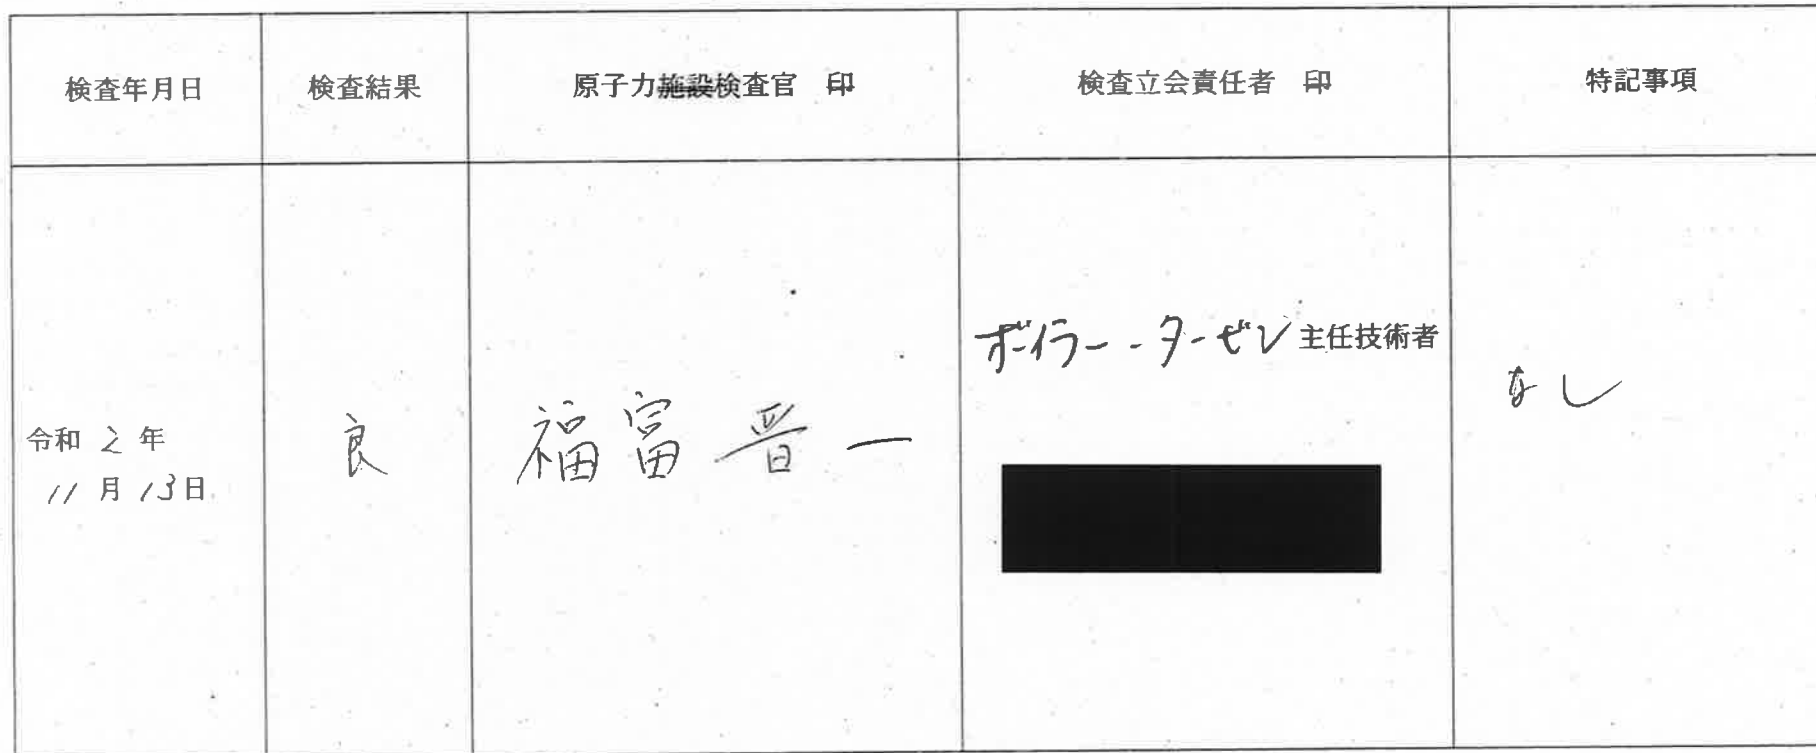 検査年月日
検査結果
原子力施設検査官 印
検査立会責任者 印
特記事項
令和 2 年
11 月 13日
良
福富 晋一
ボイラー・タービン主任技術者
なし